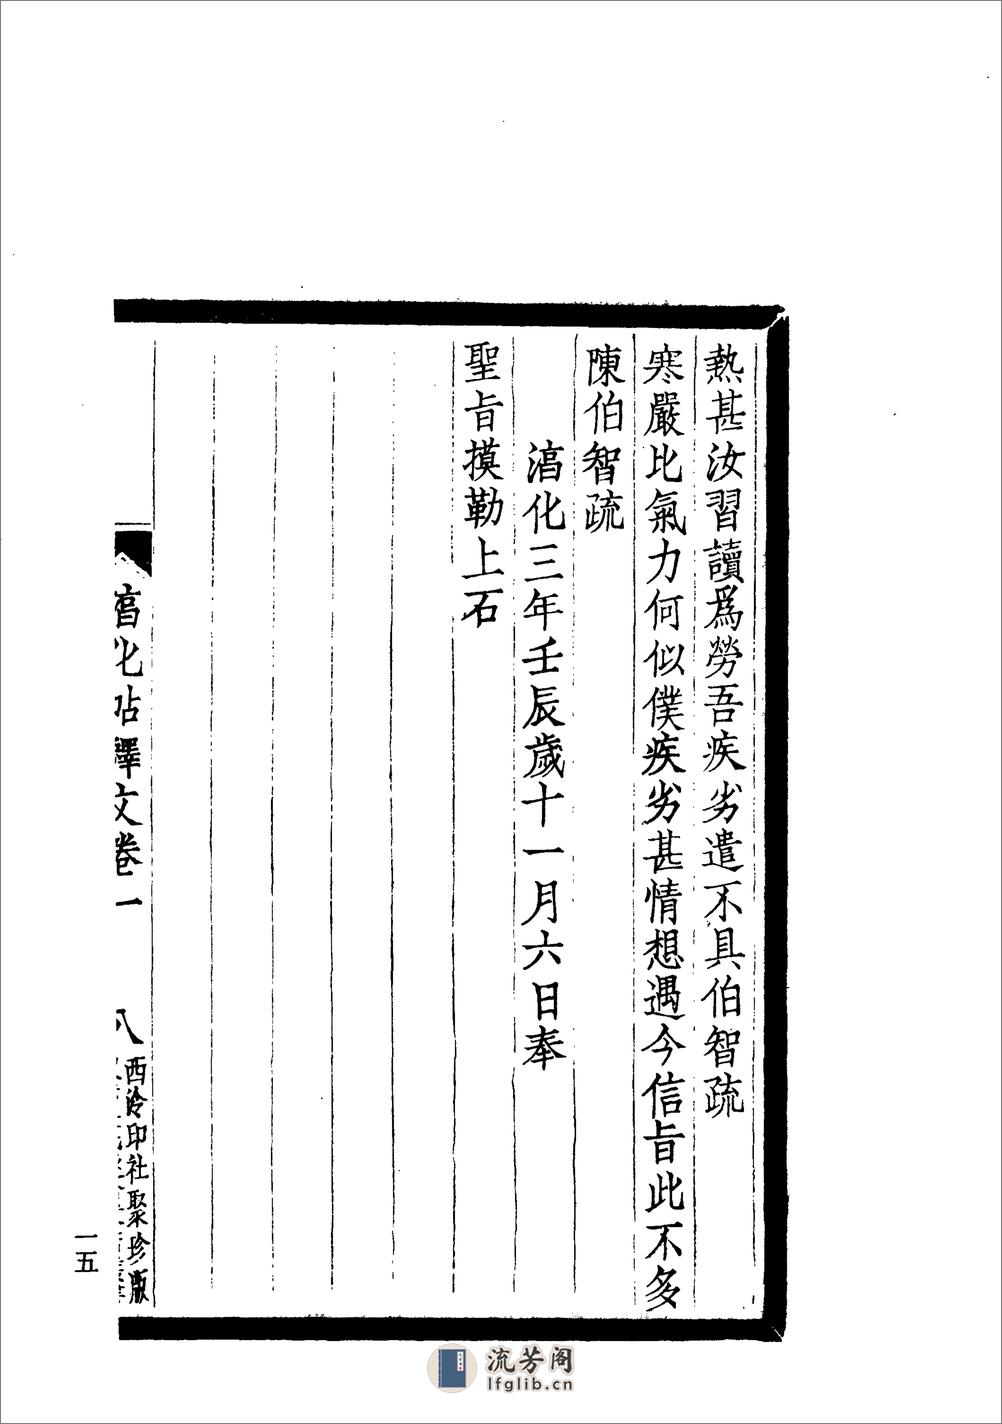 熱甚汝習讀爲勞吾疾劣遣不具伯智疏
寒嚴比氣力何似僕疾劣甚情想遇今信旨此不多
陳伯智疏
淳化三年壬辰歲十一月六日奉
聖旨摸勒上石
淳化帖釋文卷一
八
西泠印社聚珍版
一五
流芳阁
lfglib.cn